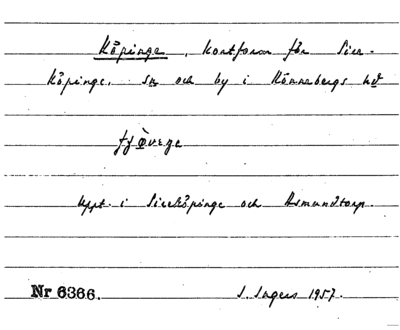 Köpinge, kortform för Sire-
köpinge, sn och by i Rönnebergs hd
Uppt. i Sireköpinge och Asmundtorp.
Nr 6366. S. Ingers 1957.